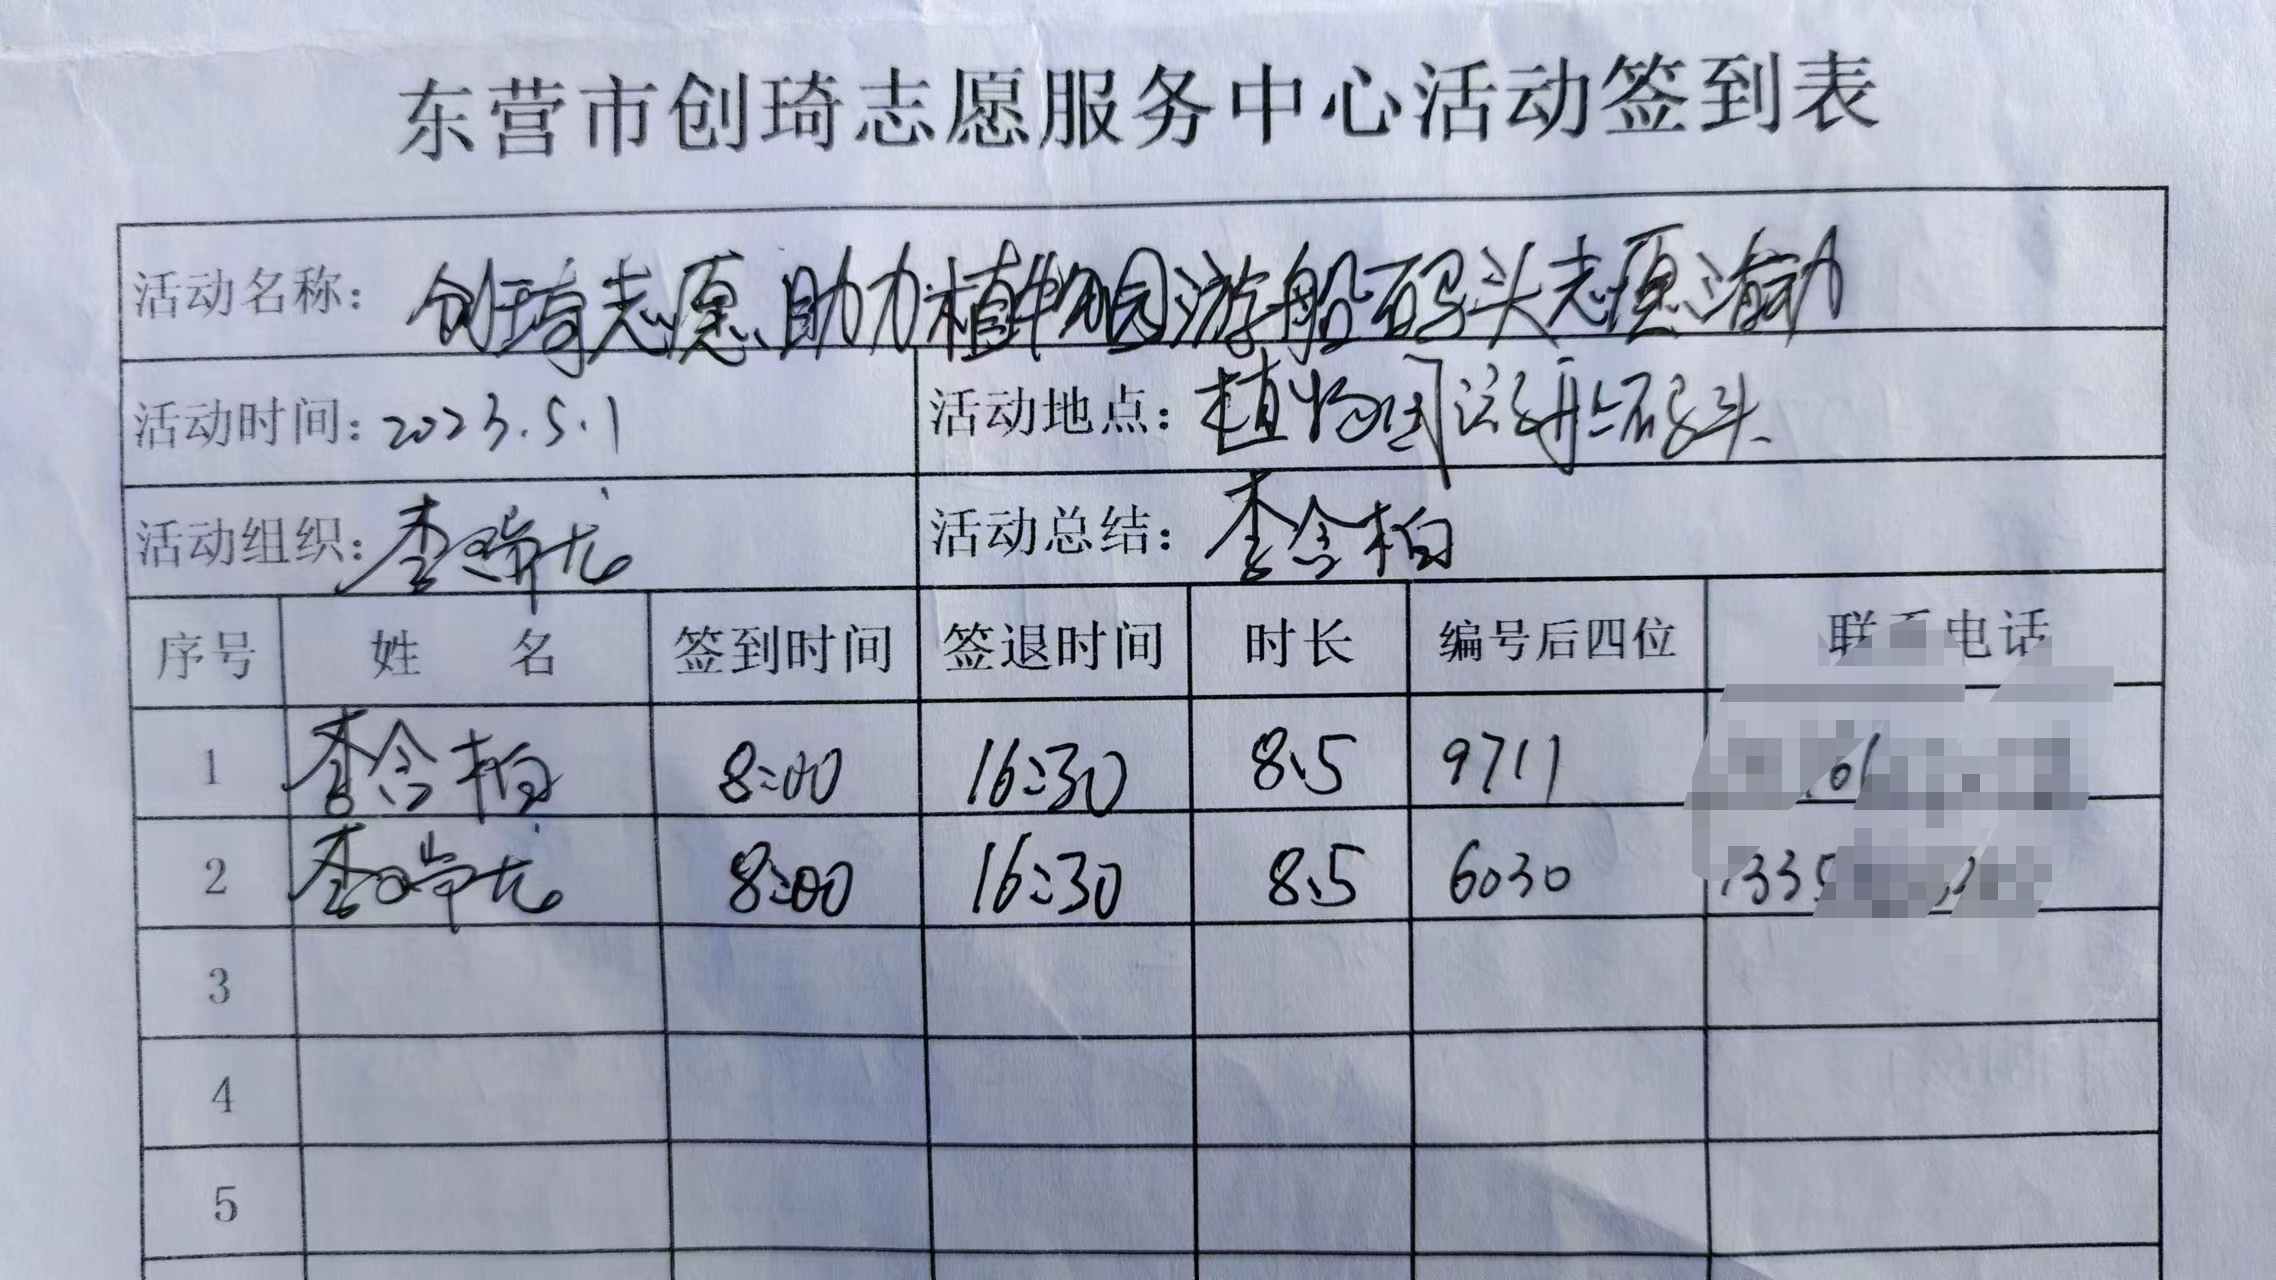 东营市创琦志愿服务中心活动签到表
活动名称：创琦志愿、助力植物园游船码头志愿活动
活动时间：2023.5.1 活动地点：植物园游船码头
活动组织：李瑞龙 活动总结：李含柏
序号 姓 名 签到时间 签退时间 时长 编号后四位 联系电话
1 李含柏 8:00 16:30 8.5 9711
2 李瑞龙 8:00 16:30 8.5 6030
3
4
5